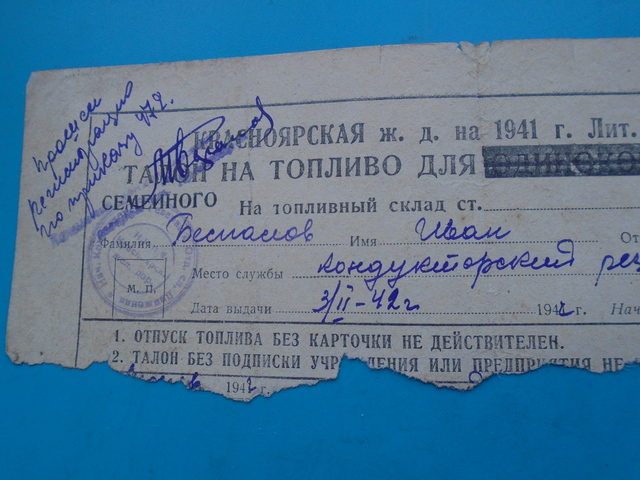 по приказу 974.
КРАСНОЯРСКАЯ ж. д. на 1941 г. Лит.
ТАЛОН НА ТОПЛИВО ДЛЯ ОДИНОКО
СЕМЕЙНОГО На топливный склад ст.
Фамилия Беспалов Имя Иван От
Место службы кондукторский рез
М. П.
Дата выдачи 3/II-42г 1942 г. Нач
1. ОТПУСК ТОПЛИВА БЕЗ КАРТОЧКИ НЕ ДЕЙСТВИТЕЛЕН.
2. ТАЛОН БЕЗ ПОДПИСКИ УЧР ДЕНИЯ ИЛИ ПРЕДПРИЯТИЯ НЕ
1942 г.